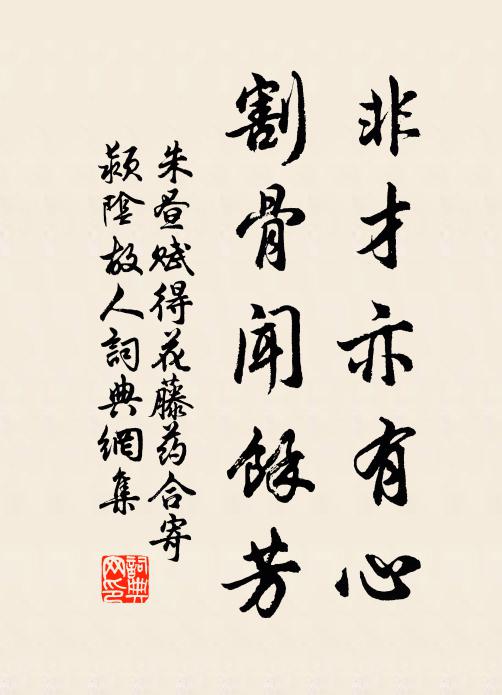 非才亦有心
割骨闻馀芳
朱昼赋得花藤药合寄
颍阴故人詞典網集
詞典网印